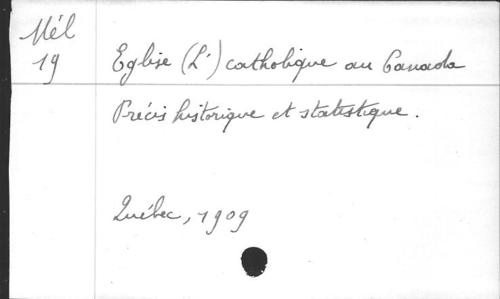 Mél
19
Eglise (L') catholique au Canada
Précis historique et statistique.
Québec, 1909